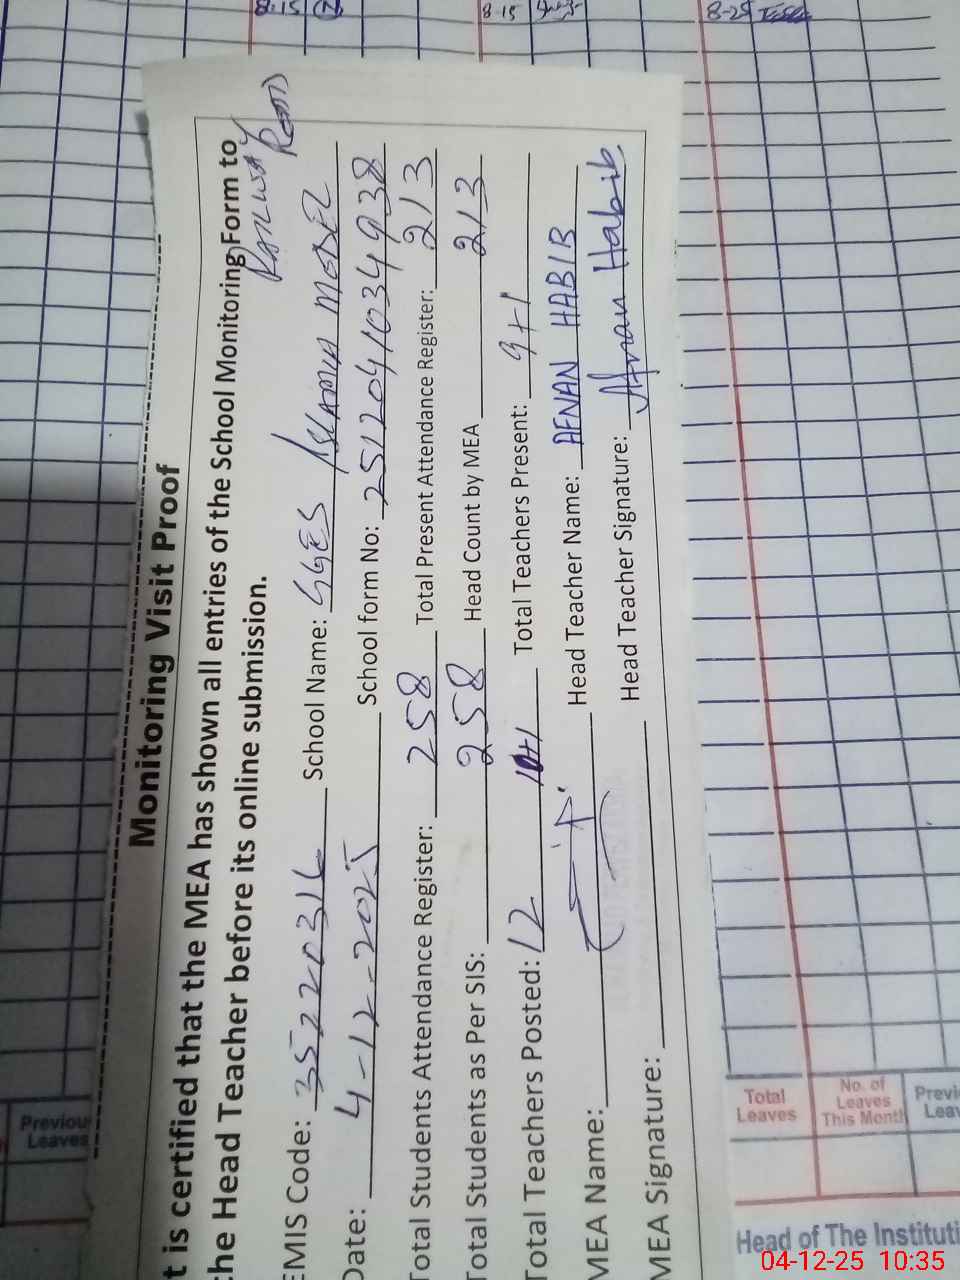 Monitoring Visit Proof
t is certified that the MEA has shown all entries of the School Monitoring Form to
the Head Teacher before its online submission.
EMIS Code: 35220316 School Name: GGES ISLAMIA MODEL
Railway Road
Date: 4-12-2025 School form No: 2512041034938
Total Students Attendance Register: 258 Total Present Attendance Register: 213
Total Students as Per SIS: 258 Head Count by MEA 213
Total Teachers Posted: 12 10+1 Total Teachers Present: 9+1
MEA Name: Head Teacher Name: AFNAN HABIB
MEA Signature: Head Teacher Signature: Afnan Habib
8-15
8-15
8-25
Previous
Leaves
Total
Leaves
No. of
Leaves
This Month
Previ
Leav
Head of The Instituti
04-12-25 10:35